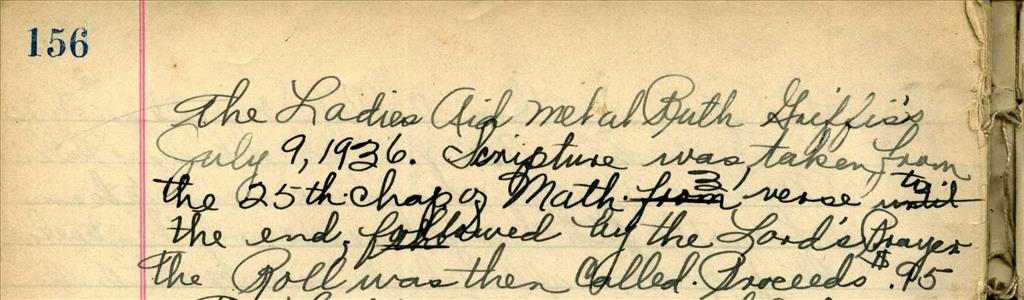 156
The Ladies Aid met at Ruth Griffis's
July 9, 1936. Scripture was taken from
the 25th chap of Math. from 3 verse until to
the end, followed by the Lord's Prayer
the Roll was then Called. Proceeds $.95